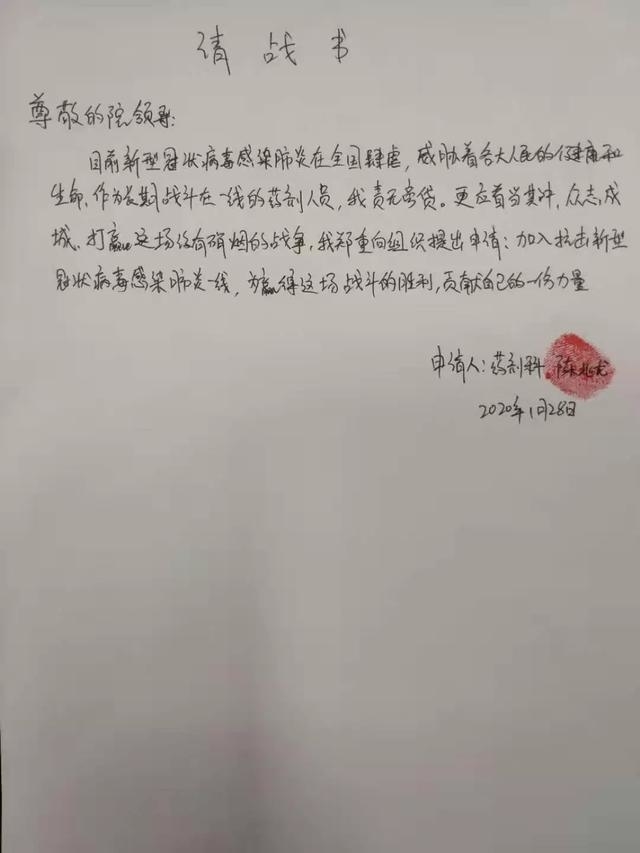 请战书
尊敬的院领导:
目前新型冠状病毒感染肺炎在全国肆虐,威胁着各大人民的健康和
生命,作为长期战斗在一线的药剂人员,我责无旁贷。更应首当其冲,众志成
城、打赢这场没有硝烟的战争,我郑重向组织提出申请:加入抗击新型
冠状病毒感染肺炎一线,为赢得这场战斗的胜利,贡献自己的一份力量
申请人:药剂科 陈兆龙
2020年1月28日